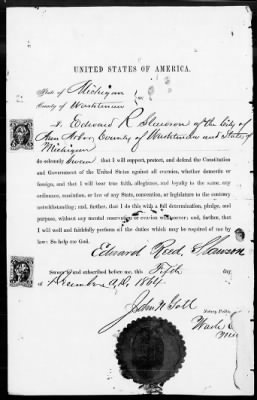 UNITED STATES OF AMERICA.
State of Michigan
County of Washtenaw
I, Edward R. Slawson of the City of
Ann Arbor, County of Washtenaw and State of
Michigan
do solemnly swear that I will support, protect, and defend the Constitution
and Government of the United States against all enemies, whether domestic or
foreign, and that I will bear true faith, allegiance, and loyalty to the same, any
ordinance, resolution, or law of any State, convention, or legislature to the contrary
notwithstanding; and, further, that I do this with a full determination, pledge, and
purpose, without any mental reservation or evasion whatsoever; and, further, that
I will well and faithfully perform all the duties which may be required of me by
law: So help me God.
Edward Reed Slawson
Sworn to and subscribed before me, this Fifth day
of December A.D. 1864.
John N. Gott
Notary Public